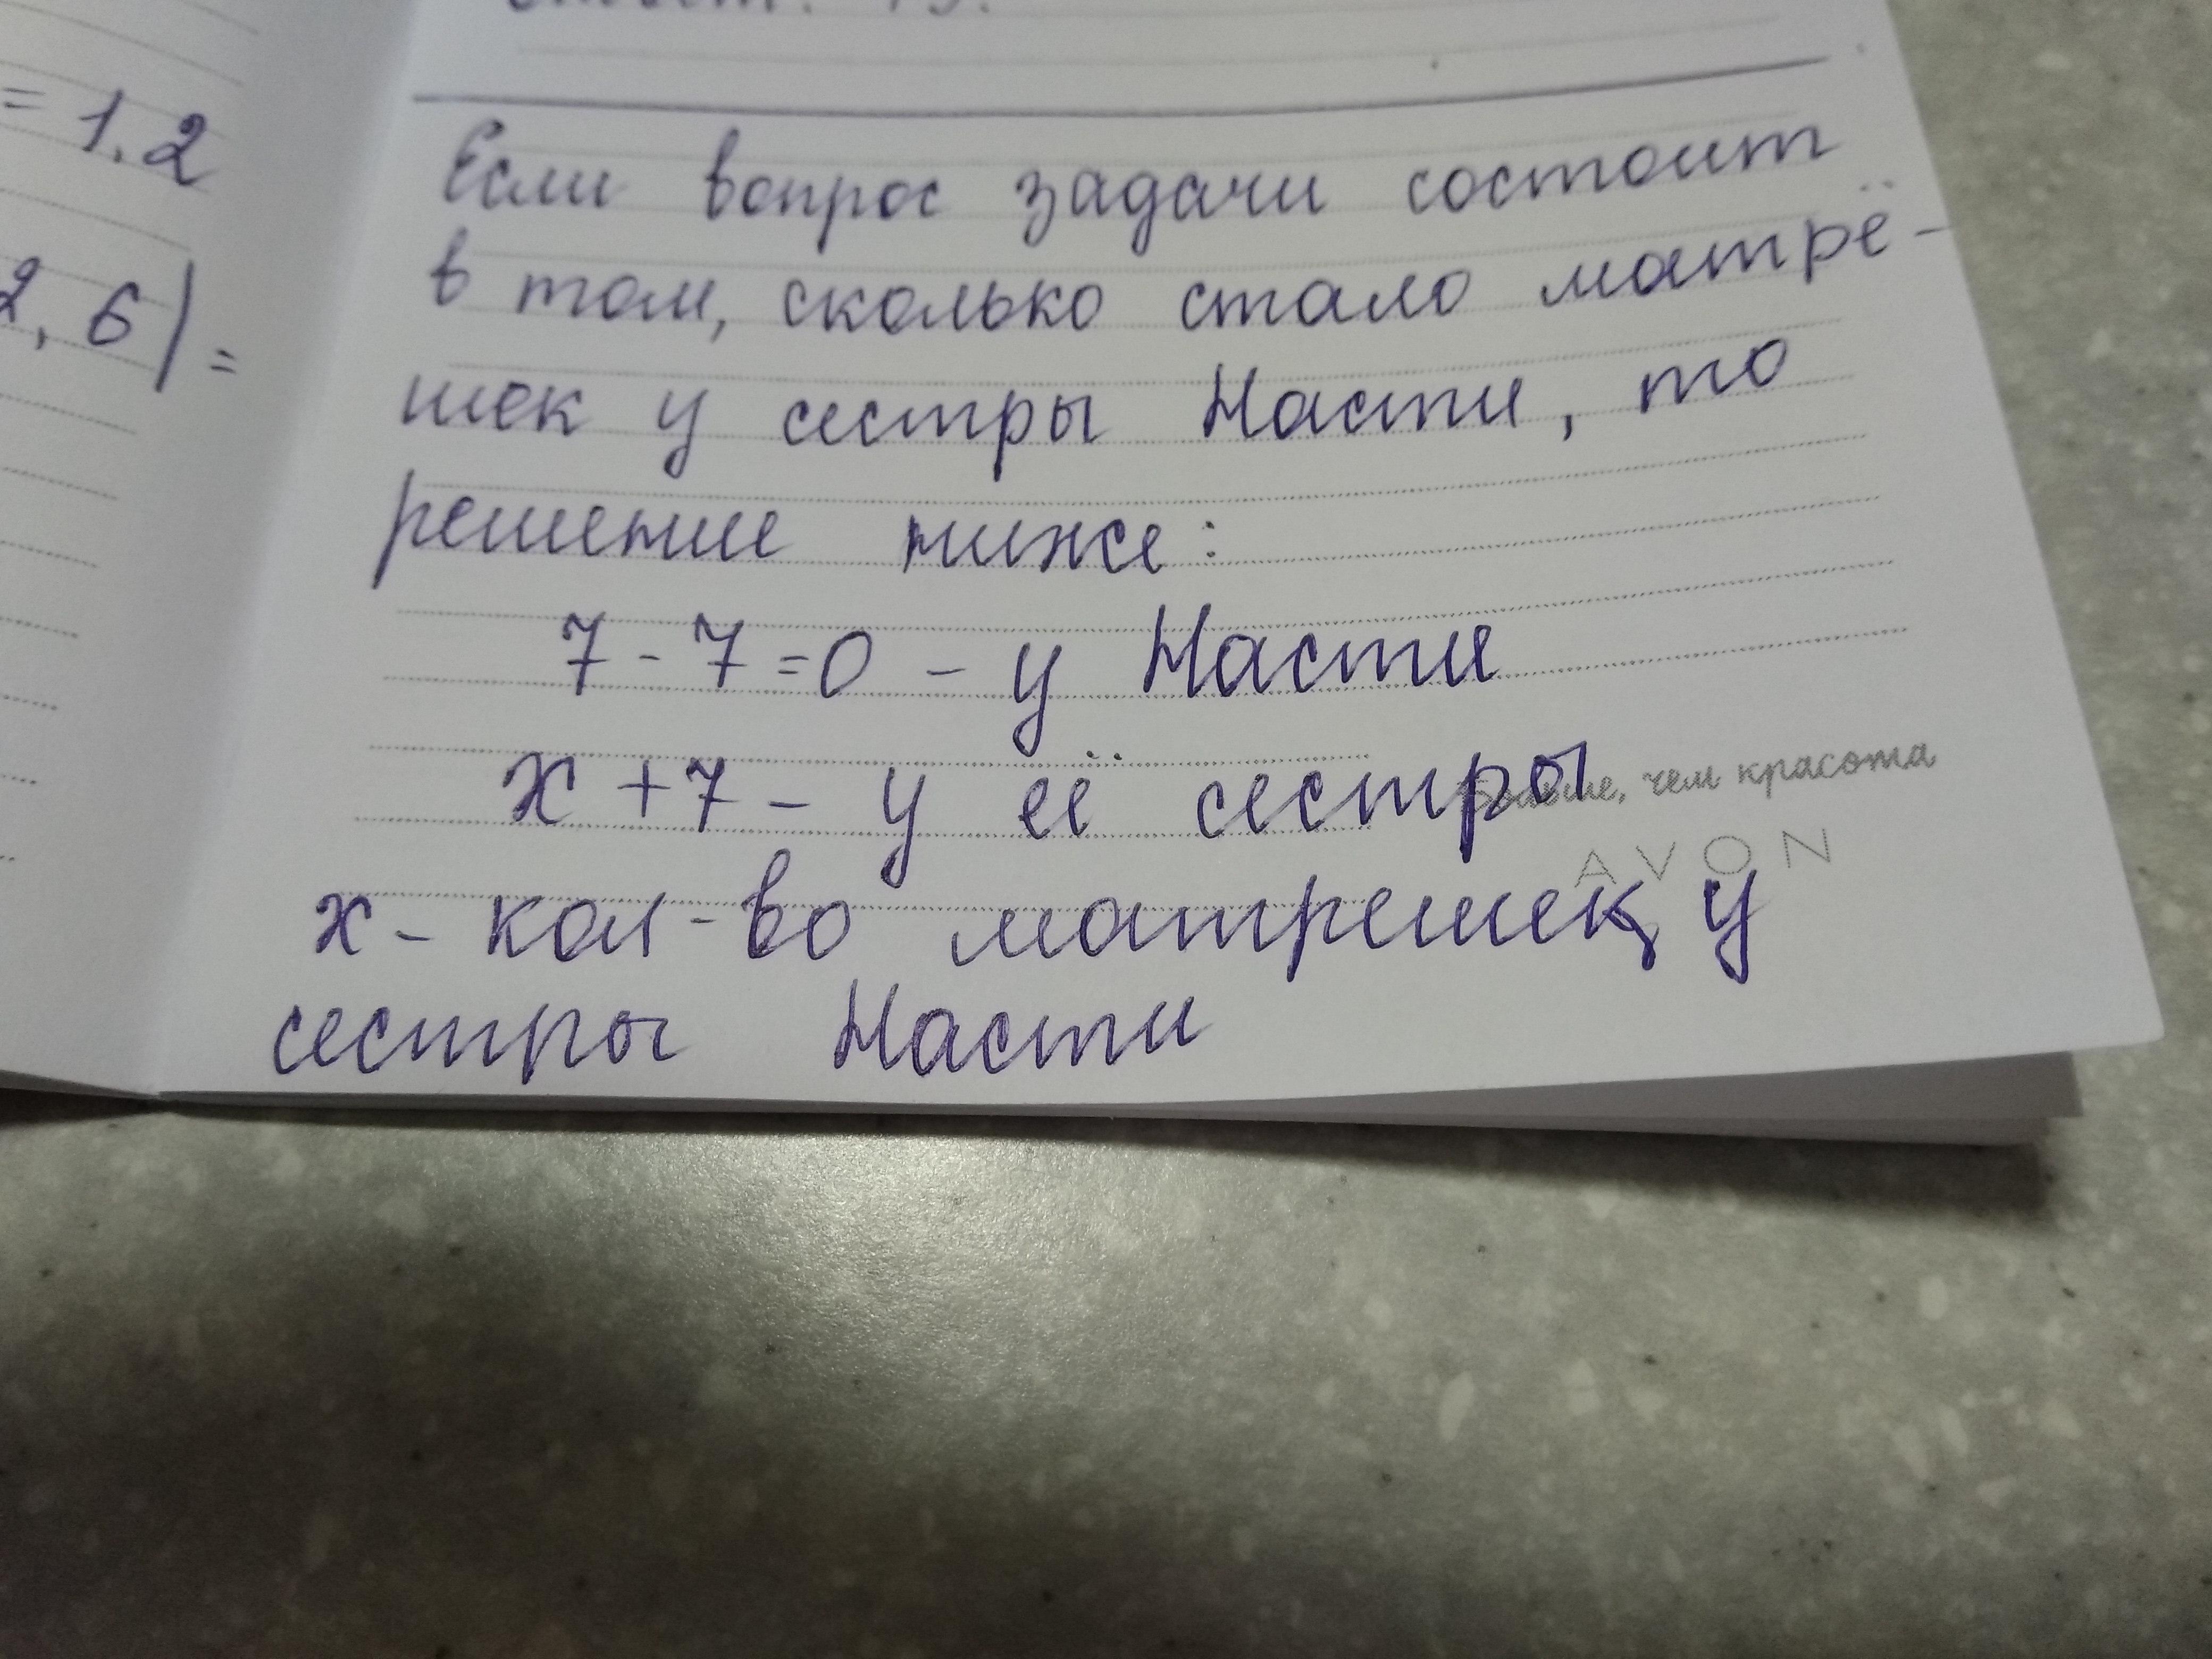 = 1.2
2, 6) =
Если вопрос задачи состоит
в том, сколько стало матрё-
шек у сестры Насти, то
решение ниже:
7 - 7 = 0 - у Насти
х + 7 - у её сестры
чем красота
AVON
х - кол-во матрешек у
сестры Насти